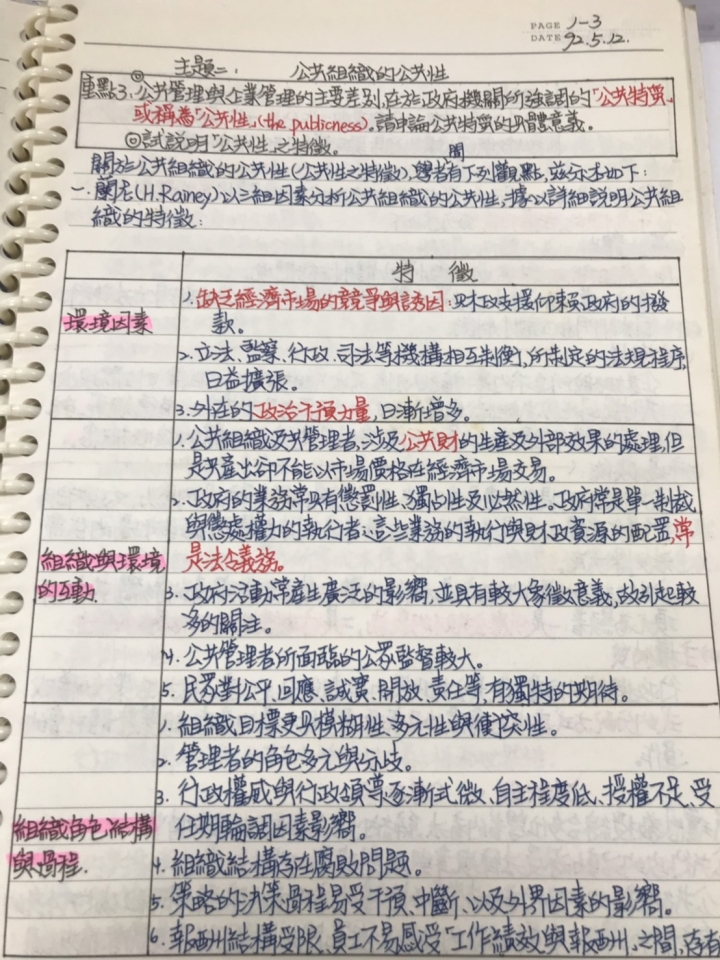 PAGE 1-3
DATE 92.5.12.
主題二: 公共組織的公共性
重點3. ◎公共管理與企業管理的主要差別,在於政府機關所強調的「公共特質」
或稱為「公共性」(the publicness)。請申論公共特質的具體意義。
◎試說明「公共性」之特徵。
關於公共組織的公共性(公共性之特徵),學者有下列觀點,茲分述如下:
一.蘭尼(H.Rainey)以三組因素分析公共組織的公共性,據以詳細說明公共組
織的特徵:
特 徵
環境因素
1.缺乏經濟市場的競爭與誘因:財政支援仰賴政府的撥
款。
2.立法、監察、行政、司法等機構相互制衡,所制定的法規程序,
日益擴張。
3.外在的政治干預力量,日漸增多。
組織與環境
的互動.
1.公共組織及其管理者,涉及公共財的生產及外部效果的處理,但
是其產出卻不能以市場價格在經濟市場交易。
2.政府的業務常具有懲罰性、獨占性及必然性。政府常是單一制裁
與懲處權力的執行者;這些業務的執行與財政資源的配置,常
是法令義務。
3.政府活動常產生廣泛的影響,並具有較大象徵意義,故引起較
多的關注。
4.公共管理者所面臨的公眾監督較大。
5.民眾對公平、回應、誠實、開放、責任等,有獨特的期待。
組織角色、結構
與過程.
1.組織目標更具模糊性、多元性與衝突性。
2.管理者的角色多元與分歧。
3.行政權威與行政領導逐漸式微、自主程度低、授權不足、受
任期論調因素影響。
4.組織結構存在腐敗問題。
5.策略的決策過程易受干預、中斷、以及外界因素的影響。
6.報酬結構受限、員工不易感受「工作績效與報酬」之間,存有